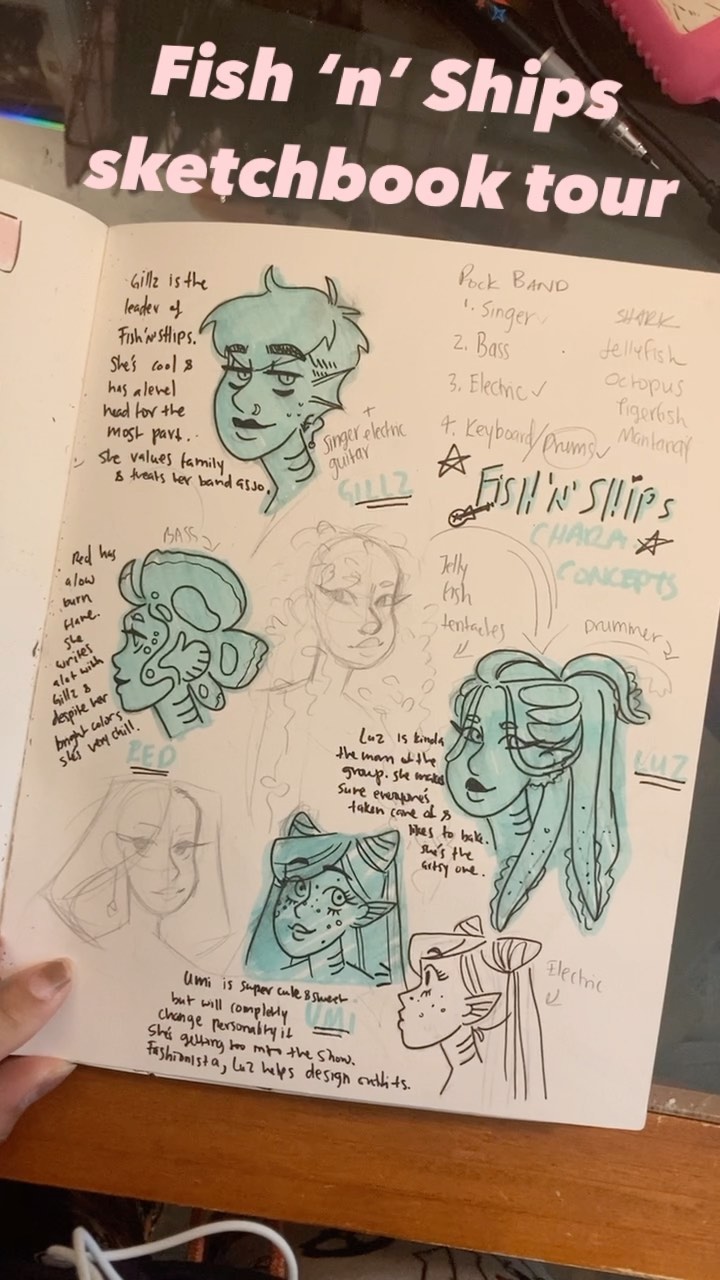 Fish ‘n’ Ships
sketchbook tour
Gillz is the
leader of
Fish'n'Ships.
She's cool &
has a level
head for the
most part.
She values family
& treats her band as so.
+
Singer electric
guitar
GILLZ
Rock BAND
1. Singer
2. Bass
3. Electric ✓
4. Keyboard/Drums ✓
SHARK
Jellyfish
Octopus
Tigerfish
Mantaray
FiSH 'N' SHiPs
CHARA
CONCEPTS
BASS
Red has
a low
burn
flame.
She
writes
alot with
Gillz &
despite her
bright colors
she's very chill.
RED
Jelly
fish
tentacles
Drummer
Luz is kinda
the mom of the
group. She makes
sure everyone's
taken care of &
likes to bake.
She's the
artsy one.
LUZ
Umi is super cute & sweet
but will completly
change personality if
She's getting too into the show.
Fashionista, Luz helps design outfits.
UMI
Electric